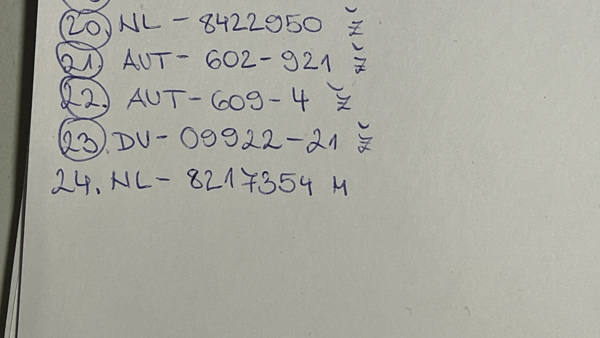 20. NL - 8422950 Ž
21. AUT - 602-921 Ž
22. AUT - 609-4 Ž
23. DV - 09922-21 Ž
24. NL - 8217354 M